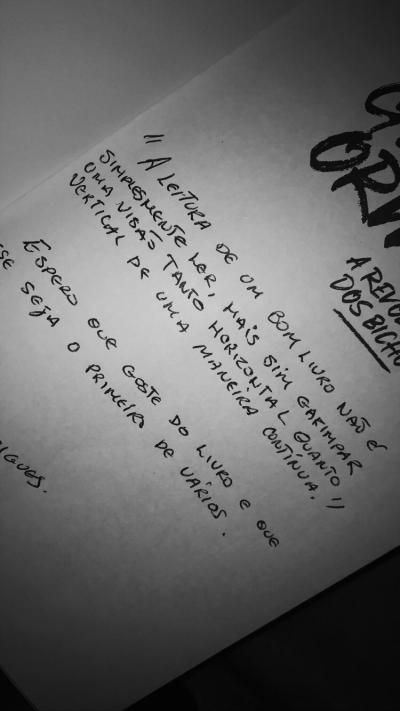 G
ORW
A REVO
DOS BICHO
" A LEITURA DE UM BOM LIVRO NAÕ É
SIMPLESMENTE LER, MAIS SIM GARIMPAR
UMA VISÃO TANTO HORIZONTAL QUANTO
VERTICAL DE UMA MANEIRA CONTÍNUA. "
ESPERO QUE GOSTE DO LIVRO E QUE
SSE SEJA O PRIMEIRO DE VÁRIOS.
IGUES.